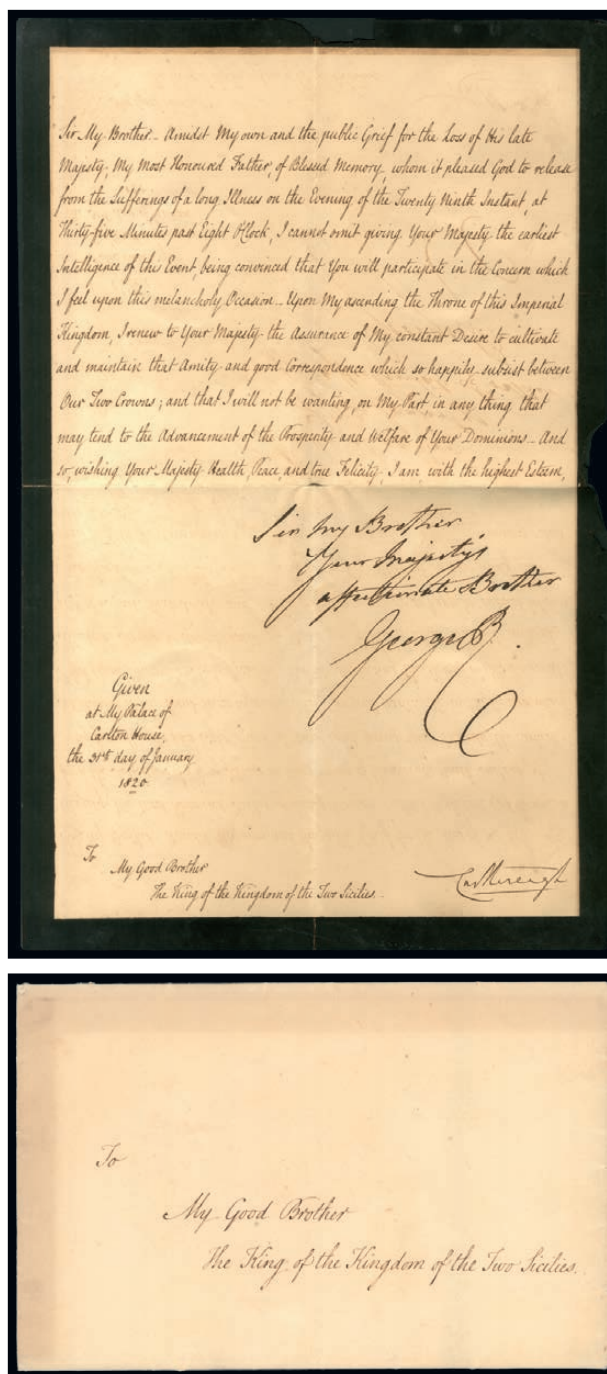 Sir My Brother_ Amidst My own and the public Grief for the Loss of His late
Majesty, My Most Honoured Father, of Blessed Memory, whom it pleased God to release
from the Sufferings of a long Illness on the Evening of the Twenty Ninth Instant, at
Thirty-five Minutes past Eight O'Clock, I cannot omit giving Your Majesty the earliest
Intelligence of this Event, being convinced that You will participate in the Concern which
I feel upon this melancholy Occasion_ Upon My ascending the Throne of this Imperial
Kingdom, I renew to Your Majesty the Assurance of My constant Desire to cultivate
and maintain that Amity and good Correspondence which so happily subsist between
Our Two Crowns; and that I will not be wanting, on My Part, in any thing that
may tend to the Advancement of the Prosperity and Welfare of Your Dominions_ And
so, wishing Your Majesty Health, Peace, and true Felicity, I am with the highest Esteem,
Sir My Brother
Your Majesty's
affectionate Brother
George R.
Given
at My Palace of
Carlton House,
the 31st day of January
1820
To
My Good Brother
The King of the Kingdom of the Two Sicilies.
Castlereagh
To
My Good Brother
The King of the Kingdom of the Two Sicilies.